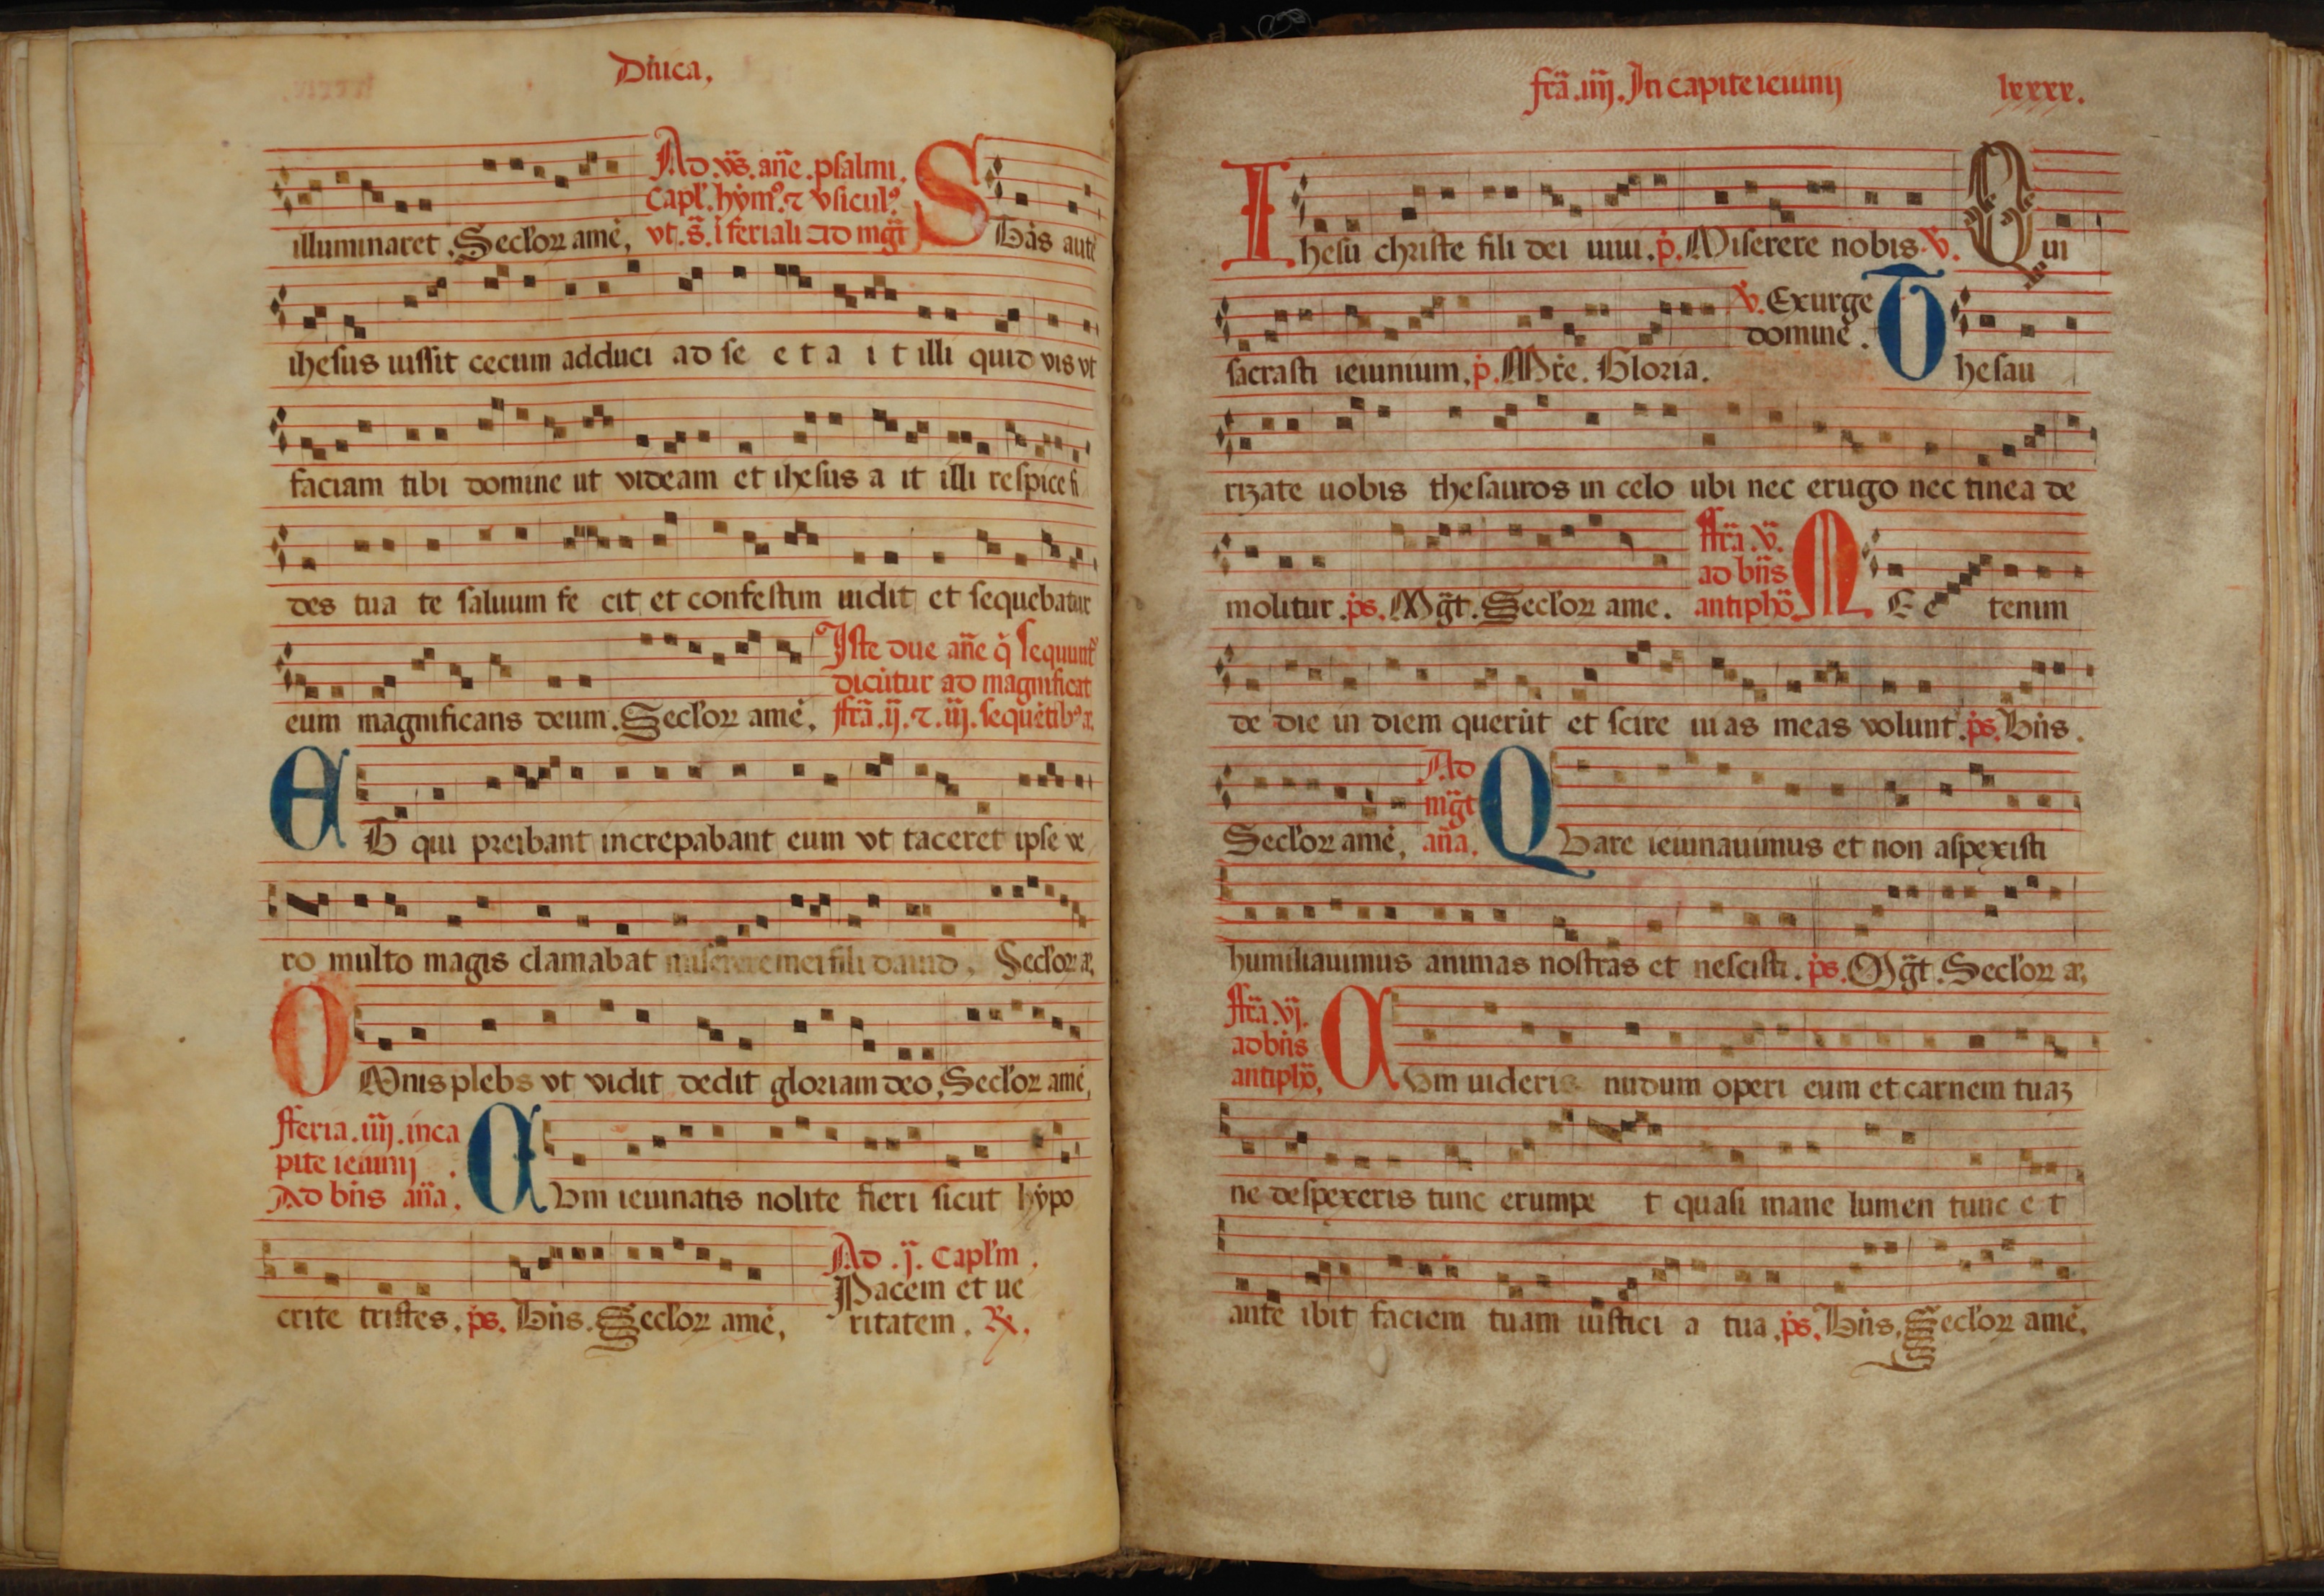 Dn̄ica,
illuminaret. Secl'oꝝ amē,
Ad. v̄s. an̄e. psalmi.
Capl'. hym᷒. ⁊ v̾sicul᷒.
vt. s̄. i feriali Ad mḡt
Stas autē
ihesus iussit cecum adduci ad se e t a i t illi quid vis vt
faciam tibi domine ut videam et ihesus a it illi respice fi
des tua te saluum fe cit et confestim uidit et sequebatur
eum magnificans deum. Secl'oꝝ amē,
Iste due an̄e q̄ sequunt᷒
dicūtur ad magnificat
ffr̄a .ij. ⁊ .iij. sequētib᷒ a.
Et qui preibant increpabant eum vt taceret ipse ve
ro multo magis clamabat miserere mei fili dauid, Secl'oꝝ a,
Omnis plebs vt vidit dedit gloriam deo, Secl'oꝝ amē,
fferia .iiij. in ca
pite ieiunij.
Ad bn̄s an̄a.
Cum ieiunatis nolite fieri sicut hypo
crite tristes. ps. Bn̄s. Secl'oꝝ amē,
Ad .ij. Capl'm,
Pacem et ue
ritatem. ℟.
fr̄a .iiij. In capite ieiunij lxxxx.
Ihesu christe fili dei uiui. p̄. Miserere nobis. ℣. Qui
sacrasti ieiunium. p̄. Mr̄e. Gloria.
℣. Exurge
domine.
Thesau
rizate uobis thesauros in celo ubi nec erugo nec tinea de
molitur. ps. Mḡt. Secl'oꝝ ame.
ffr̄a .v.
ad bn̄s
antiphō.
ME e tenim
de die in diem querūt et scire uias meas volunt. ps. Bn̄s.
Secl'oꝝ amē,
Ad
mḡt
an̄a.
Quare ieiunauimus et non aspexisti
humiliauimus animas nostras et nescisti. ps. Mḡt. Secl'oꝝ a,
ffr̄a .vj.
ad bn̄s
antiphō,
Cum uideris nudum operi eum et carnem tuaꝫ
ne despexeris tunc erumpe t quasi mane lumen tunc e t
ante ibit faciem tuam iustici a tua. ps. Bn̄s. Secl'oꝝ amē.